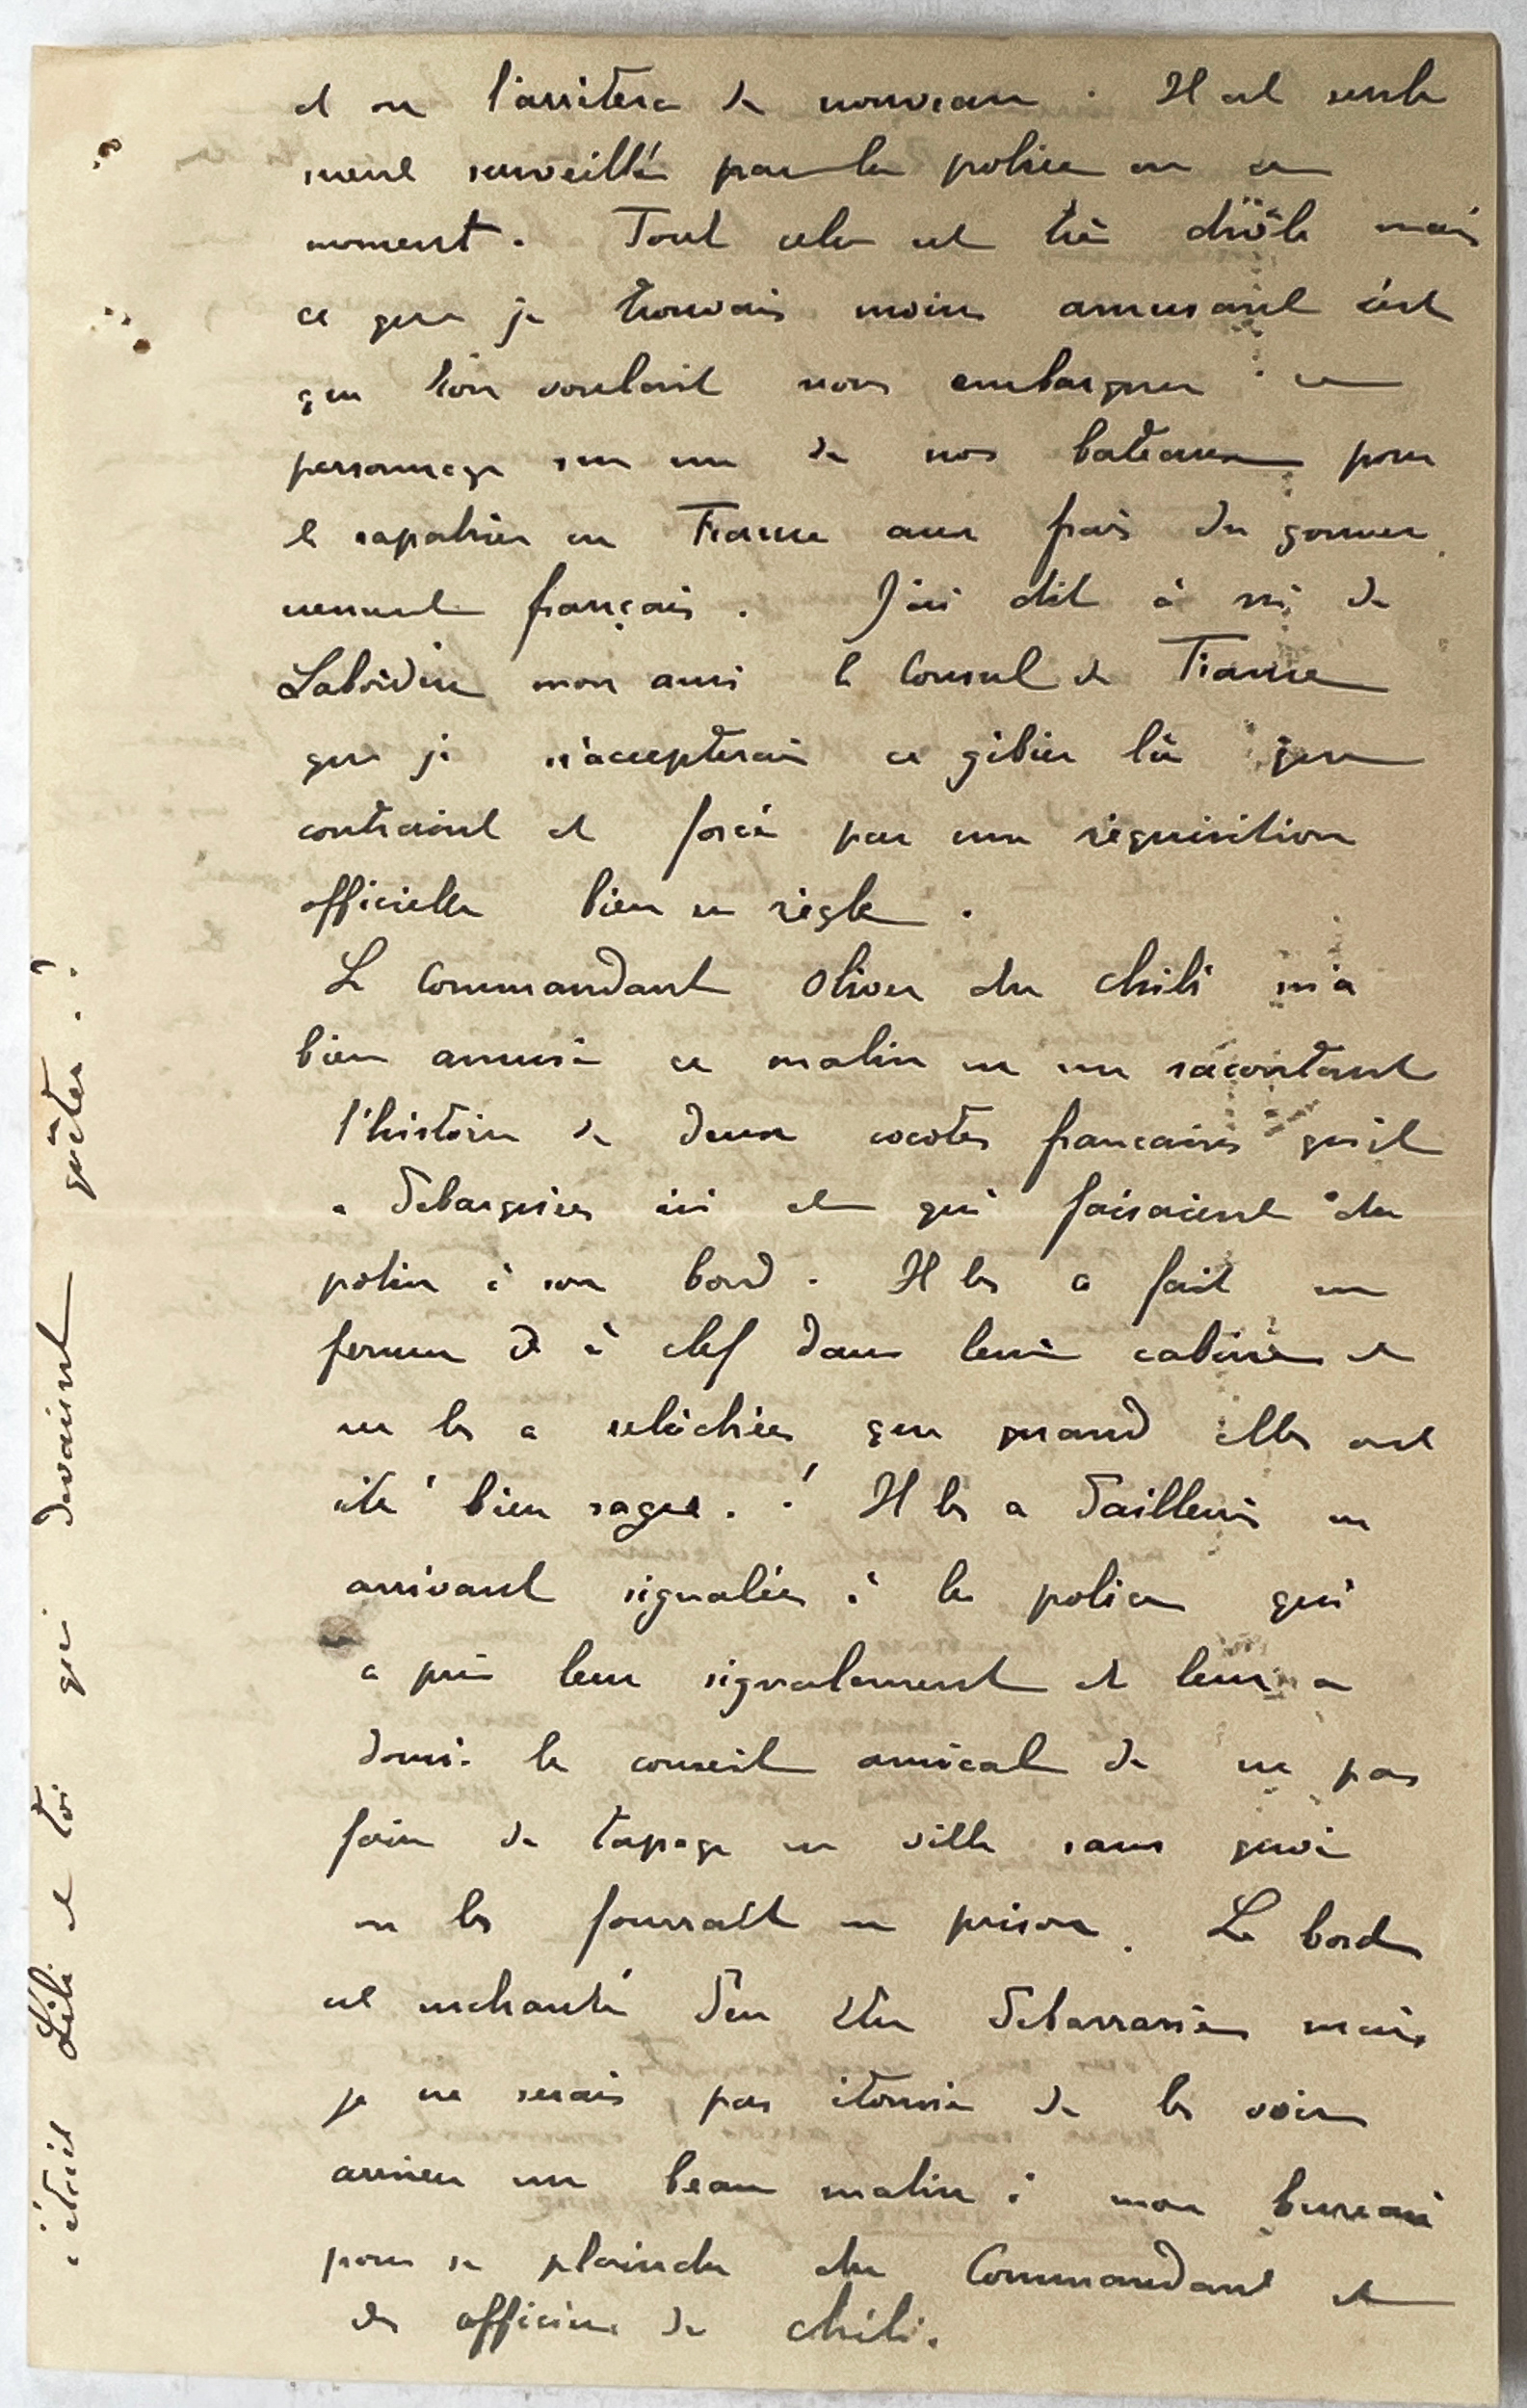 et on l'arrêtera de nouveau. Il est seule
ment surveillé par la police en ce
moment. Tout cela est très drôle mais
ce que je trouvais moins amusant c'est
que l'on voulait nous embarquer ce
personnage sur un de nos bateaux pour
le rapatrier en France aux frais du gouver
nement français. J'ai dit à Mr de
mon ami le Consul de France
que je n'accepterais ce gibier là que
contraint et forcé par une réquisition
officielle bien en règle.
Le Commandant Oliver du Chili m'a
bien amusé ce matin en me racontant
l'histoire de deux cocotes françaises qu'il
a débarquées ici et qui faisaient du
potin à son bord. Il les a fait en
fermer à clef dans leur cabine et
ne les a relâchées que quand elles ont
été bien sages.! Il les a d'ailleurs en
arrivant signalées à la police qui
a pris leur signalement et leur a
donné le conseil amical de ne pas
faire de tapage en ville sans quoi
on les fourrait en prison. Le bord
est enchanté d'en être débarrassé mais
je ne serais pas étonné de les voir
arriver un beau matin à mon bureau
pour se plaindre du Commandant et
des officiers du Chili.
c'était Lili et toi qui devaient quêter.?